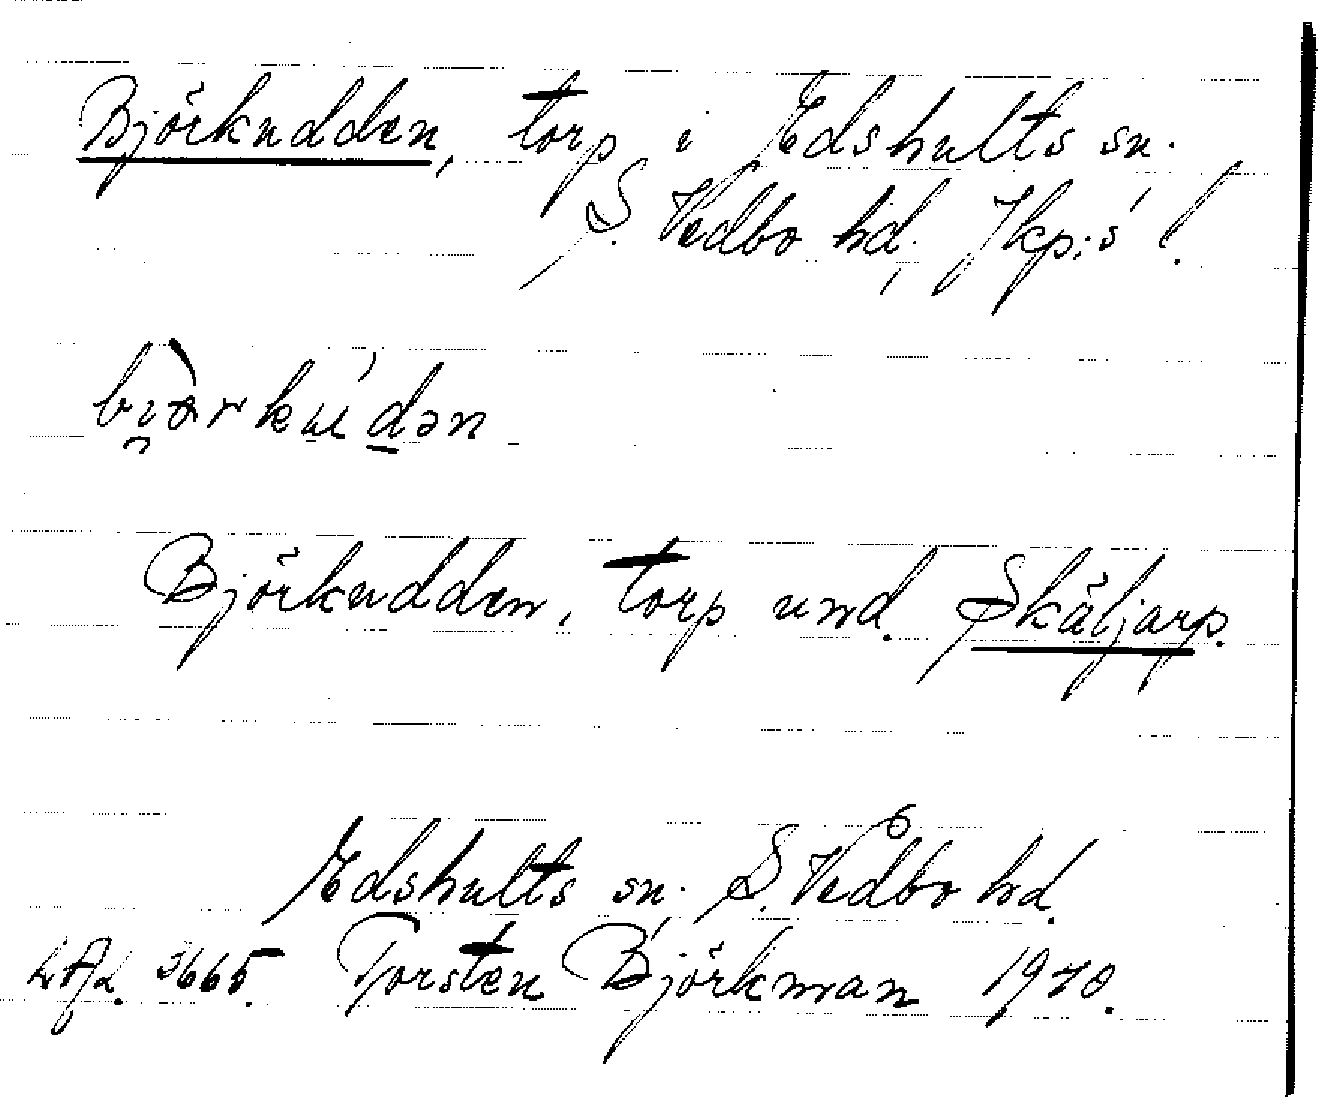 Björkudden, torp i Edshults sn.
S. Vedbo hd, Jkp:s l.
Björkudden, torp und. Skäljarp.
Edshults sn. S. Vedbo hd.
3665. Torsten Björkman 1970.